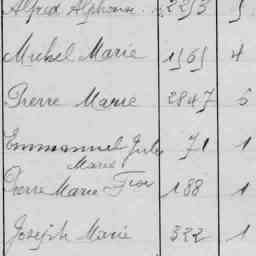 Alfred Alphonse 2253
Michel Marie 1565 4
Pierre Marie 2847 6
Emmanuel Jules 71 1
Marie
Pierre Marie 188 1
Joseph Marie 322 1